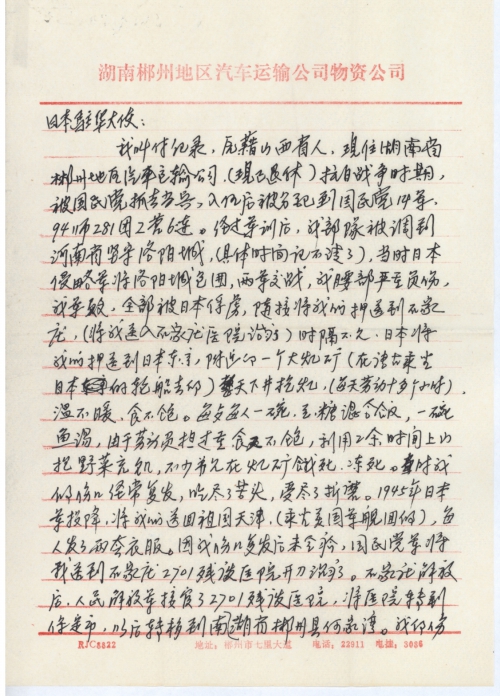 湖南郴州地区汽车运输公司物资公司
日本驻华大使：
我叫付纪录，原籍山西省人，现住湖南省
郴州地区汽车运输公司，（现已退休）抗日战争时期，
被国民党抓去当兵，入伍后被分配到国民党14军，
94师281团2营6连。经过军训后，我部队被调到
河南省坚守洛阳城，（具体时间记不清了），当时日本
侵略军将洛阳城包围，两军交战，我腰部严重负伤，
我军败，全部被日本俘虏，随接将我们押送到石家
庄，（将我送入石家庄医院治疗）时隔不久，日本将
我们押送到日本东京，附近的一个大煤矿（在塘沽乘坐
日本的轮船去的）下井挖煤，（每天劳动十多个小时），
温不暖、食不饱。每支每人一碗，混合饭，一碗
鱼汤，由于劳动负担过重食不饱，利用工余时间上山
挖野菜充饥，不少弟兄在煤矿饿死、冻死。时我
的伤口经常复发，吃尽了苦头，受尽了折磨。1945年日本
军投降，将我们送回祖国天津，（乘坐美国军舰回的），每
人发了两套衣服。因我伤口复发后未全愈，国民党军将
我送到石家庄2701残谈医院开刀治疗。石家庄解放
后，人民解放军接管了2701残谈医院，将医院转到
保定市，以后转移到湖南省郴州县何家湾。我的伤
RJC8822 地址：郴州市七里大道 电话：22911 电挂：3086